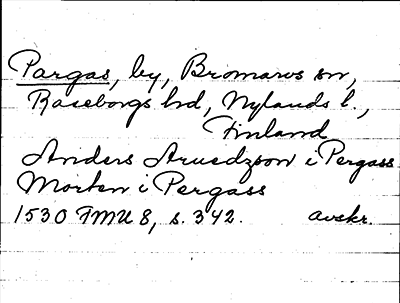 Pargas, by, Bromarvs sn,
Raseborgs hd, Nylands l.,
Finland
Anders Aruedzson i Pergass
Morten i Pergass
1530 FMU 8, s. 342. avskr.